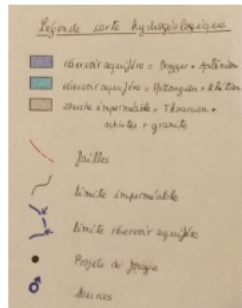 Légende carte hydrogéologique
réservoir aquifère = Dogger + Aalénien
réservoir aquifère = Hettangien + Rhétien
couche imperméable = Toarcien +
schistes + granite
failles
limite imperméable
limite réservoir aquifère
Projets de forage
Sources